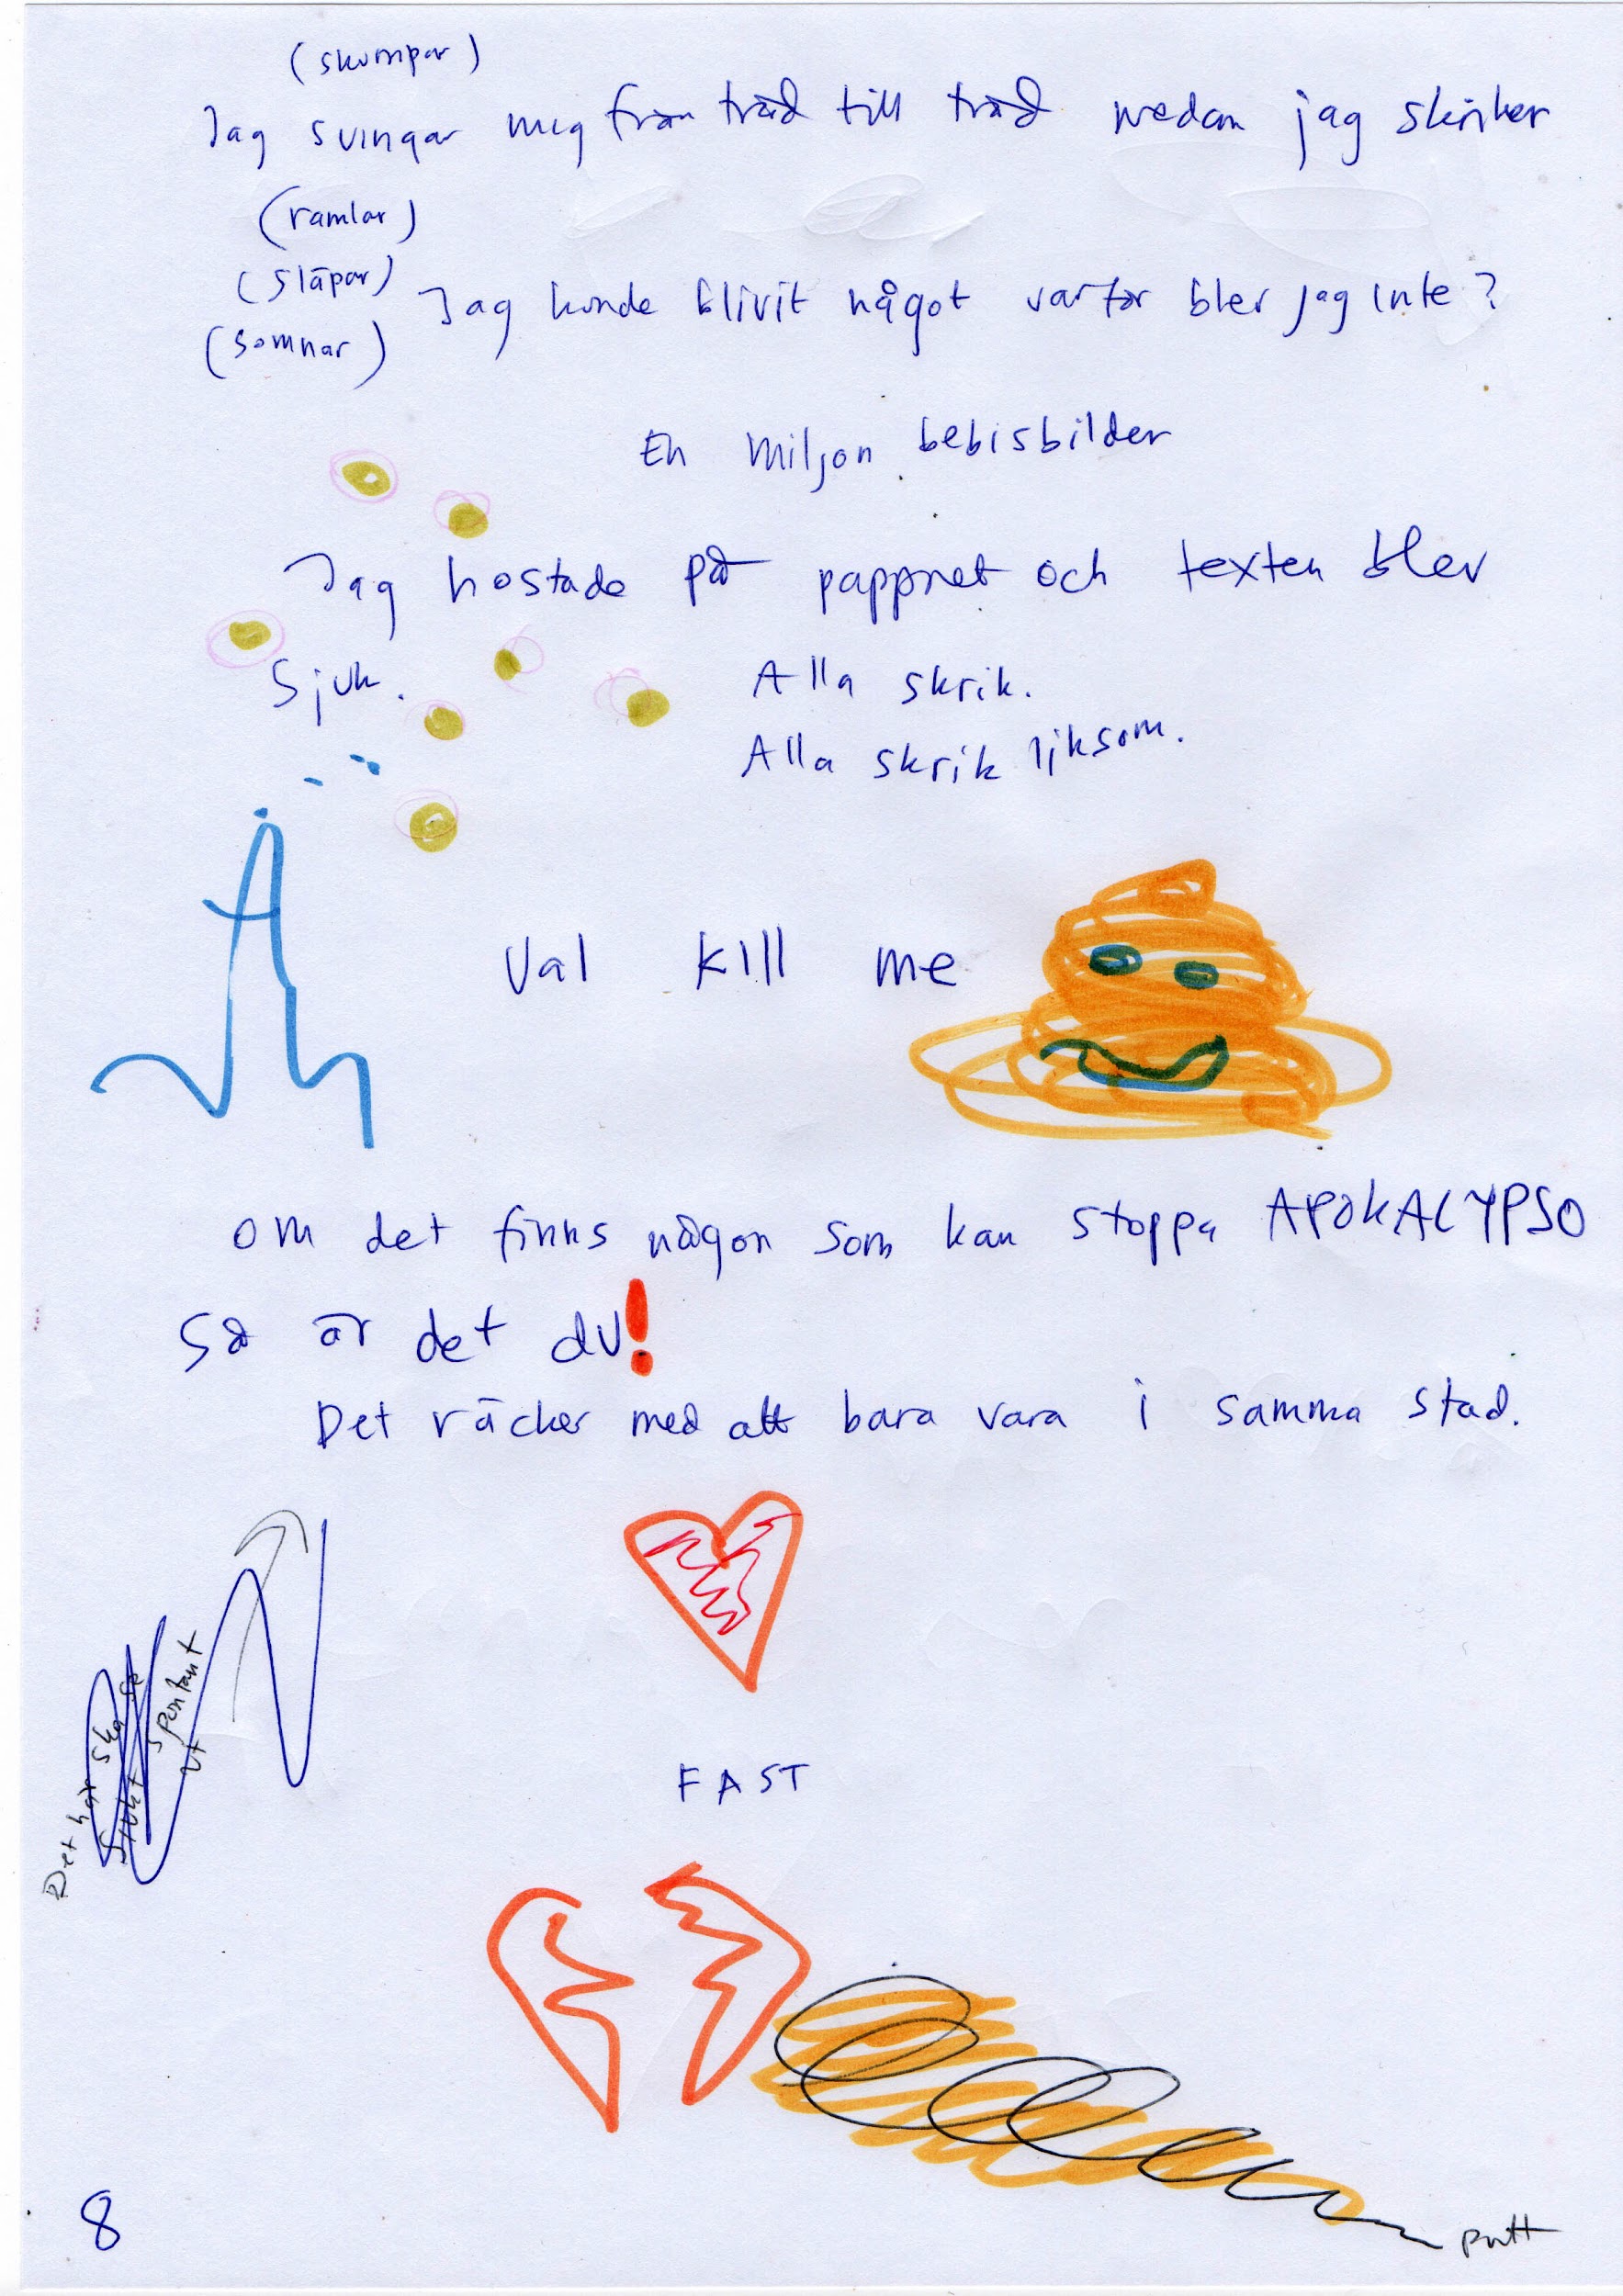 (skumpar)
Jag svingar mig från träd till träd medan jag skriker
(ramlar)
(släpar)
Jag kunde blivit något varför blev jag inte?
(somnar)
En miljon bebisbilder
Jag hostade på pappret och texten blev
sjuk.
Alla skrik.
Alla skrik liksom.
Val kill me
om det finns någon som kan stoppa APOKALYPSO
så är det du!
Det räcker med att bara vara i samma stad.
Det här ska se
spontant
ut
FAST
8